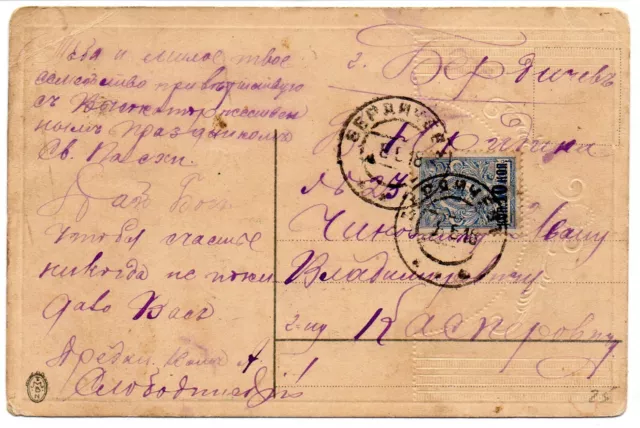 Тебя и милое твое
семейство приветствую
съ Высокоторжествен
нымъ праздникомъ
Св. Пасхи.
Дай Богъ
чтобы счастье
никогда не поки
дало Васъ
Слободинскій!
г. Бердичевъ
№ 25
Чиновнику Ивану
Владимировичу
г-ну Касперовичу
БЕРДИЧЕВЪ
БЕРДИЧЕВЪ
10 КОП.
25